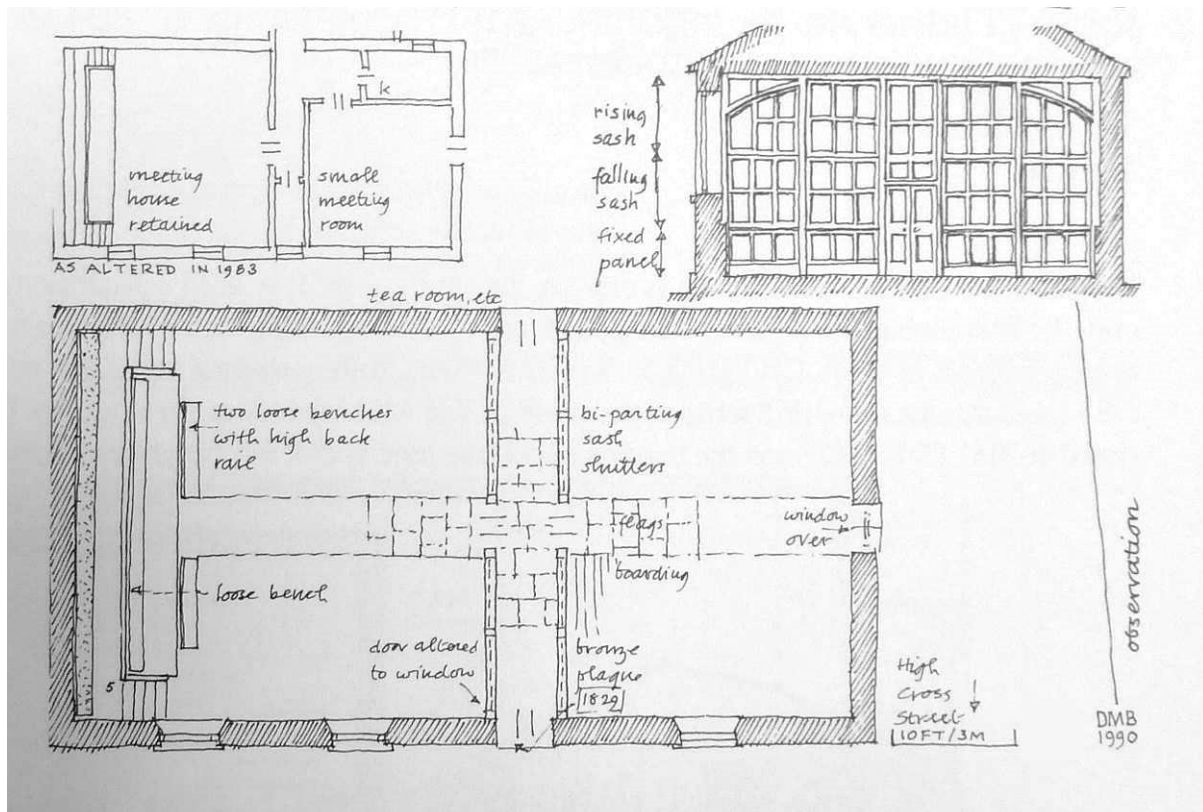 k
meeting
house
retained
small
meeting
room
AS ALTERED IN 1983
rising
sash
falling
sash
fixed
panel
tea room, etc
two loose benches
with high back
rail
bi-parting
sash
shutters
flags
window
over
boarding
loose bench
door altered
to window
bronze
plaque
1829
5
High
Cross
Street
10FT/3M
observation
DMB
1990